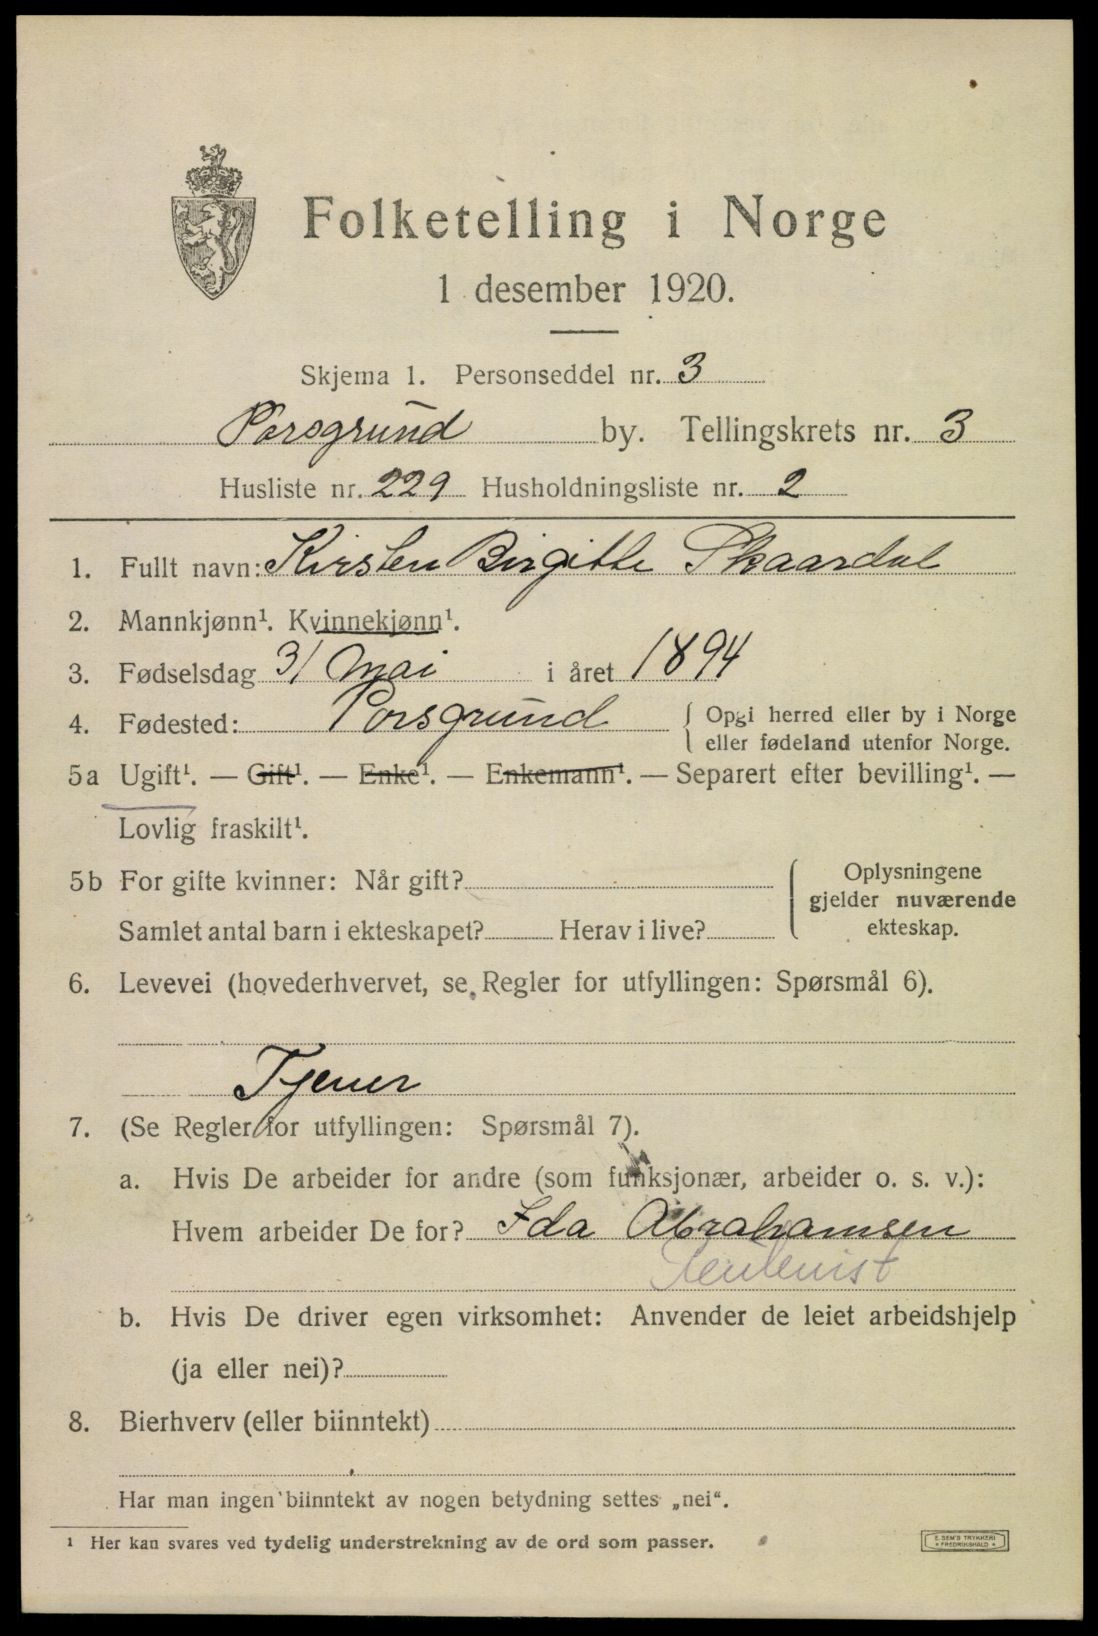 Folketelling i Norge
1 desember 1920.
Skjema 1. Personseddel nr. 3
Porsgrund by. Tellingskrets nr. 3
Husliste nr. 229 Husholdningsliste nr. 2
1. Fullt navn: Kirsten Birgitte Skaardal
2. Mannkjønn¹. Kvinnekjønn¹.
3. Fødselsdag 31 Mai i året 1894
4. Fødested: Porsgrund { Opgi herred eller by i Norge
eller fødeland utenfor Norge.
5a Ugift¹. — Gift¹. — Enke¹. — Enkemann¹. — Separert efter bevilling¹. —
Lovlig fraskilt¹.
5b For gifte kvinner: Når gift? { Oplysningene
gjelder nuværende
Samlet antal barn i ekteskapet? Herav i live? ekteskap.
6. Levevei (hovederhvervet, se Regler for utfyllingen: Spørsmål 6).
Tjener
7. (Se Regler for utfyllingen: Spørsmål 7).
a. Hvis De arbeider for andre (som funksjonær, arbeider o. s. v.):
Hvem arbeider De for? Ida Abrahamsen
b. Hvis De driver egen virksomhet: Anvender de leiet arbeidshjelp
(ja eller nei)?
8. Bierhverv (eller biinntekt)
Har man ingen biinntekt av nogen betydning settes „nei“.
¹ Her kan svares ved tydelig understrekning av de ord som passer.
E. SEM'S TRYKKERI
* FREDRIKSHALD *